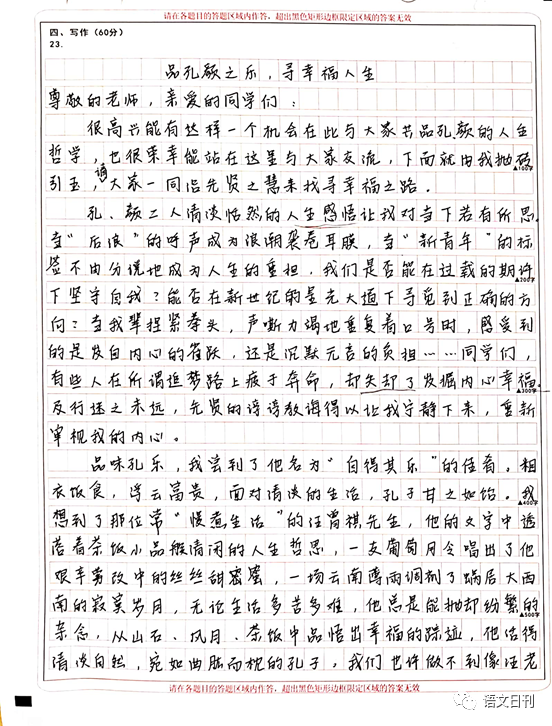 请在各题目的答题区域内作答，超出黑色矩形边框限定区域的答案无效
四、写作（60分）
23.
品孔颜之乐，寻幸福人生
尊敬的老师，亲爱的同学们：
很高兴能有这样一个机会在此与大家共品孔颜的人生
哲学，也很荣幸能站在这里与大家交流，下面就由我抛砖
▲100字
引玉，请大家一同沿先贤之慧来找寻幸福之路。
孔、颜二人清淡恬然的人生感悟让我对当下若有所思
当“后浪”的呼声成为浪潮裹卷耳膜，当“新青年”的标
签不由分说地成为人生的重担，我们是否能在过载的期许
▲200字
下坚守自我？能否在新世纪的星光大道下寻觅到正确的方
向？当我辈捏紧拳头，声嘶力竭地重复着口号时，感受到
的是发自内心的雀跃，还是沉默无言的负担……同学们，
有些人在所谓追梦路上疲于奔命，却失却了发掘内心幸福。
▲300字
及行迷之未远，先贤的谆谆教诲得以让我宁静下来，重新
审视我的内心。
品味孔乐，我尝到了他名为“自得其乐”的佳肴。粗
衣饭食，浮云富贵，面对清淡的生活，孔子甘之如饴。我
▲400字
想到了那位常“慢煮生活”的汪曾祺先生，他的文字中透
着茶饭小品般清闲的人生哲思，一支葡萄月令唱出了他
艰辛劳改中的丝丝甜蜜蜜，一场云南薄雨调剂了蜗居大西
南的寂寞岁月，无论生活多苦多难，他总是能抛却纷繁的
▲500字
杂念，从山石、风月、茶饭中品悟出幸福的踪迹，他活得
清淡自然，宛如曲肱而枕的孔子，我们也许做不到像汪老
请在各题目的答题区域内作答，超出黑色矩形边框限定区域的答案无效
语文日刊